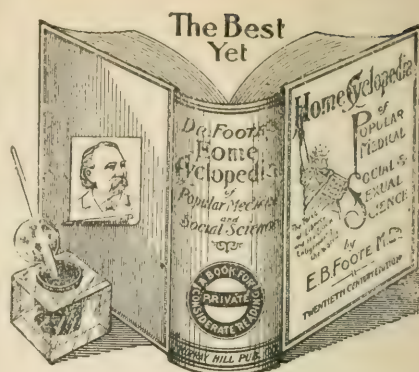 The Best
Yet
Dr. Foote's
Home
Cyclopedia
of
Popular Medical
and
Social Science
A BOOK FOR
PRIVATE
CONSIDERATE READING
MURRAY HILL PUB.
Home Cyclopedia
of
POPULAR
MEDICAL
SOCIAL &
SEXUAL
SCIENCE
by
E.B. FOOTE M.D.
TWENTIETH CENTURY EDITION